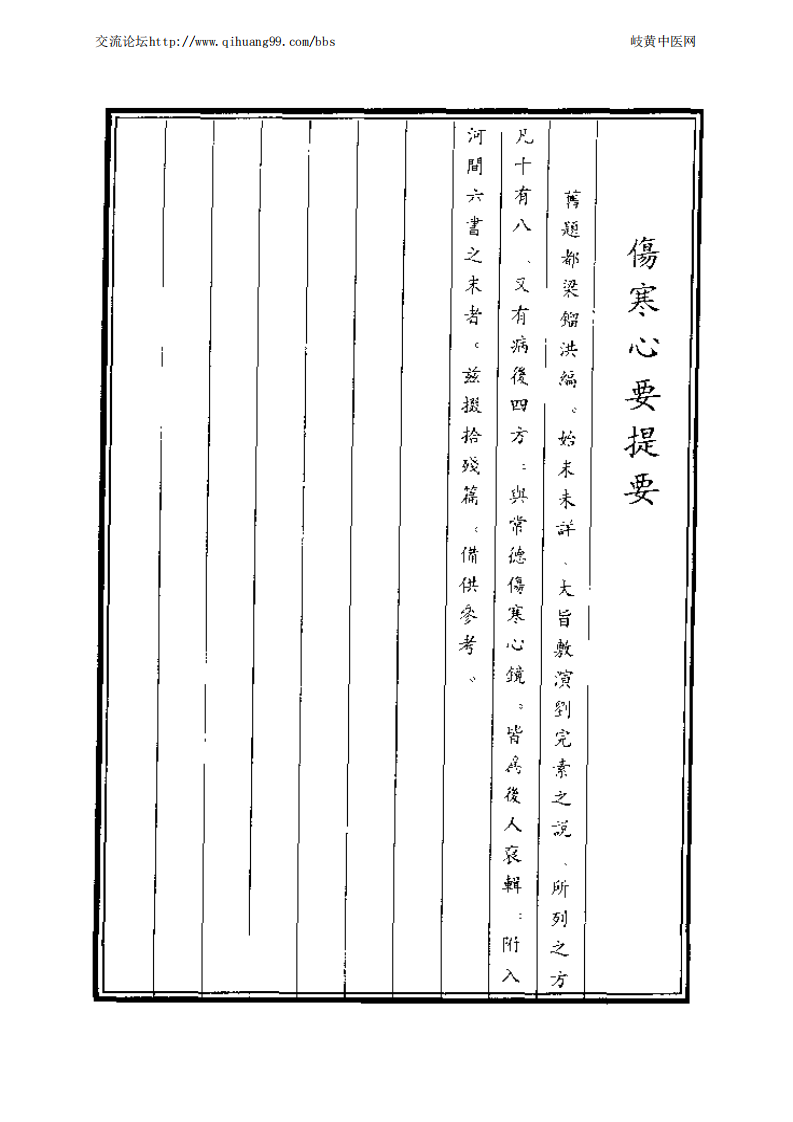 交流论坛http://www.qihuang99.com/bbs
岐黄中医网
傷寒心要提要
舊題都梁鎦洪編。始末未詳、大旨敷演劉完素之說、所列之方
凡十有八、又有病後四方：與常德傷寒心鏡。皆為後人裒輯：附入
河間六書之末者。茲掇拾殘篇。備供參考。